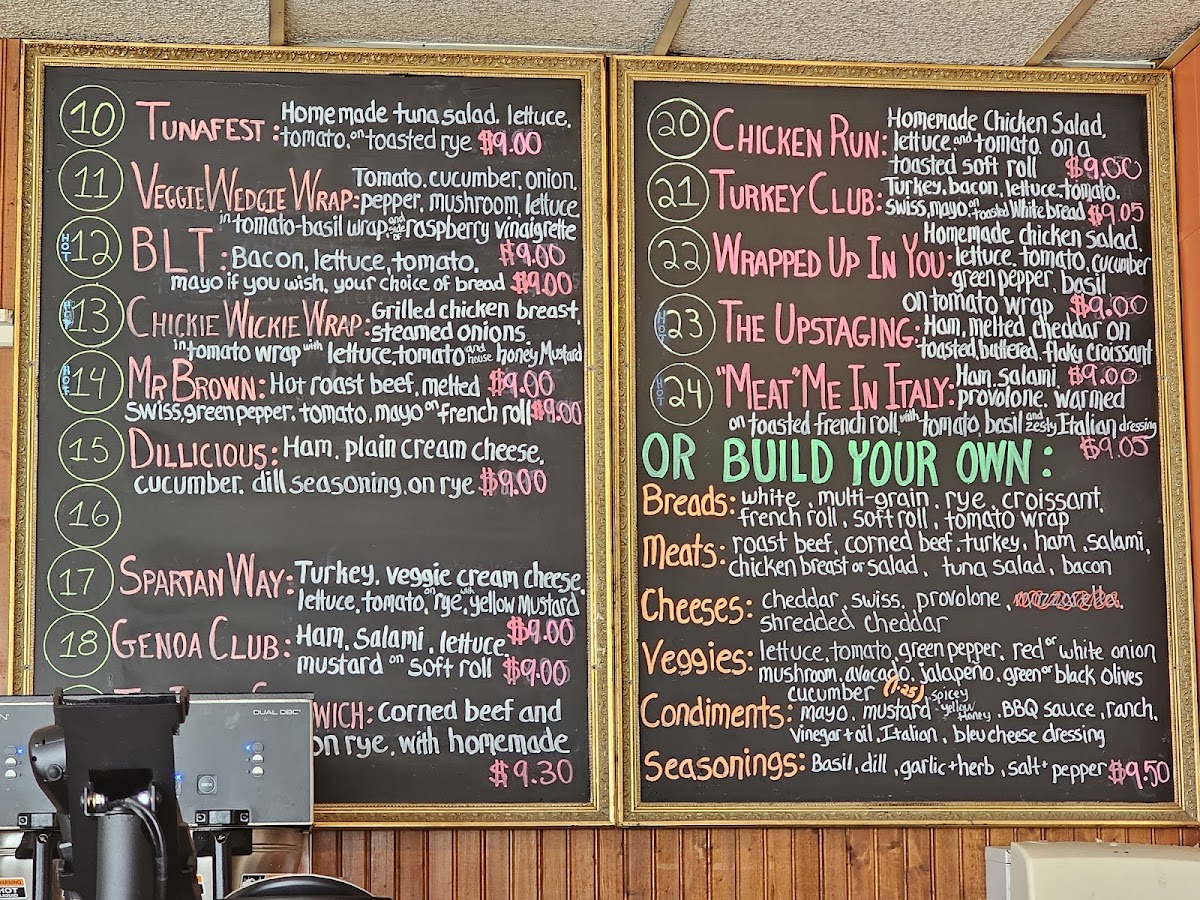 10 TUNAFEST: Homemade tuna salad, lettuce,
tomato, on toasted rye $9.00
11 VEGGIE WEDGIE WRAP: Tomato, cucumber, onion,
pepper, mushroom, lettuce
in tomato-basil wrap and side of raspberry vinaigrette
$9.00
HOT 12 BLT: Bacon, lettuce, tomato,
mayo if you wish, your choice of bread $9.00
HOT 13 CHICKIE WICKIE WRAP: Grilled chicken breast,
steamed onions,
in tomato wrap with lettuce, tomato and house honey Mustard
$9.00
HOT 14 MR BROWN: Hot roast beef, melted
swiss, green pepper, tomato, mayo on french roll $9.00
15 DILLICIOUS: Ham, plain cream cheese,
cucumber, dill seasoning, on rye $9.00
16
17 SPARTAN WAY: Turkey, veggie cream cheese,
lettuce, tomato, on rye, with yellow Mustard
$9.00
18 GENOA CLUB: Ham, Salami, lettuce,
mustard on soft roll $9.00
WICH: Corned beef and
on rye, with homemade
$9.30
20 CHICKEN RUN: Homemade Chicken Salad,
lettuce and tomato, on a
toasted soft roll $9.00
21 TURKEY CLUB: Turkey, bacon, lettuce, tomato,
swiss, mayo, on toasted White bread $9.05
22 WRAPPED UP IN YOU: Homemade chicken salad,
lettuce, tomato, cucumber
green pepper, basil
on tomato wrap $9.00
HOT 23 THE UPSTAGING: Ham, melted cheddar on
toasted, buttered, flaky croissant
$9.00
HOT 24 "MEAT" ME IN ITALY: Ham, salami,
provolone, warmed
on toasted french roll with tomato, basil and zesty Italian dressing
$9.05
OR BUILD YOUR OWN:
Breads: white, multi-grain, rye, croissant,
french roll, soft roll, tomato wrap
Meats: roast beef, corned beef, turkey, ham, salami,
chicken breast or salad, tuna salad, bacon
Cheeses: cheddar, swiss, provolone, mozzarella,
shredded cheddar
Veggies: lettuce, tomato, green pepper, red or white onion
mushroom, avocado, jalapeño, green or black olives
cucumber (1.25)
Condiments: mayo, mustard spicey yellow Honey, BBQ sauce, ranch,
vinegar + oil, Italian, bleu cheese dressing
Seasonings: Basil, dill, garlic + herb, salt + pepper $9.50
DUAL DBC